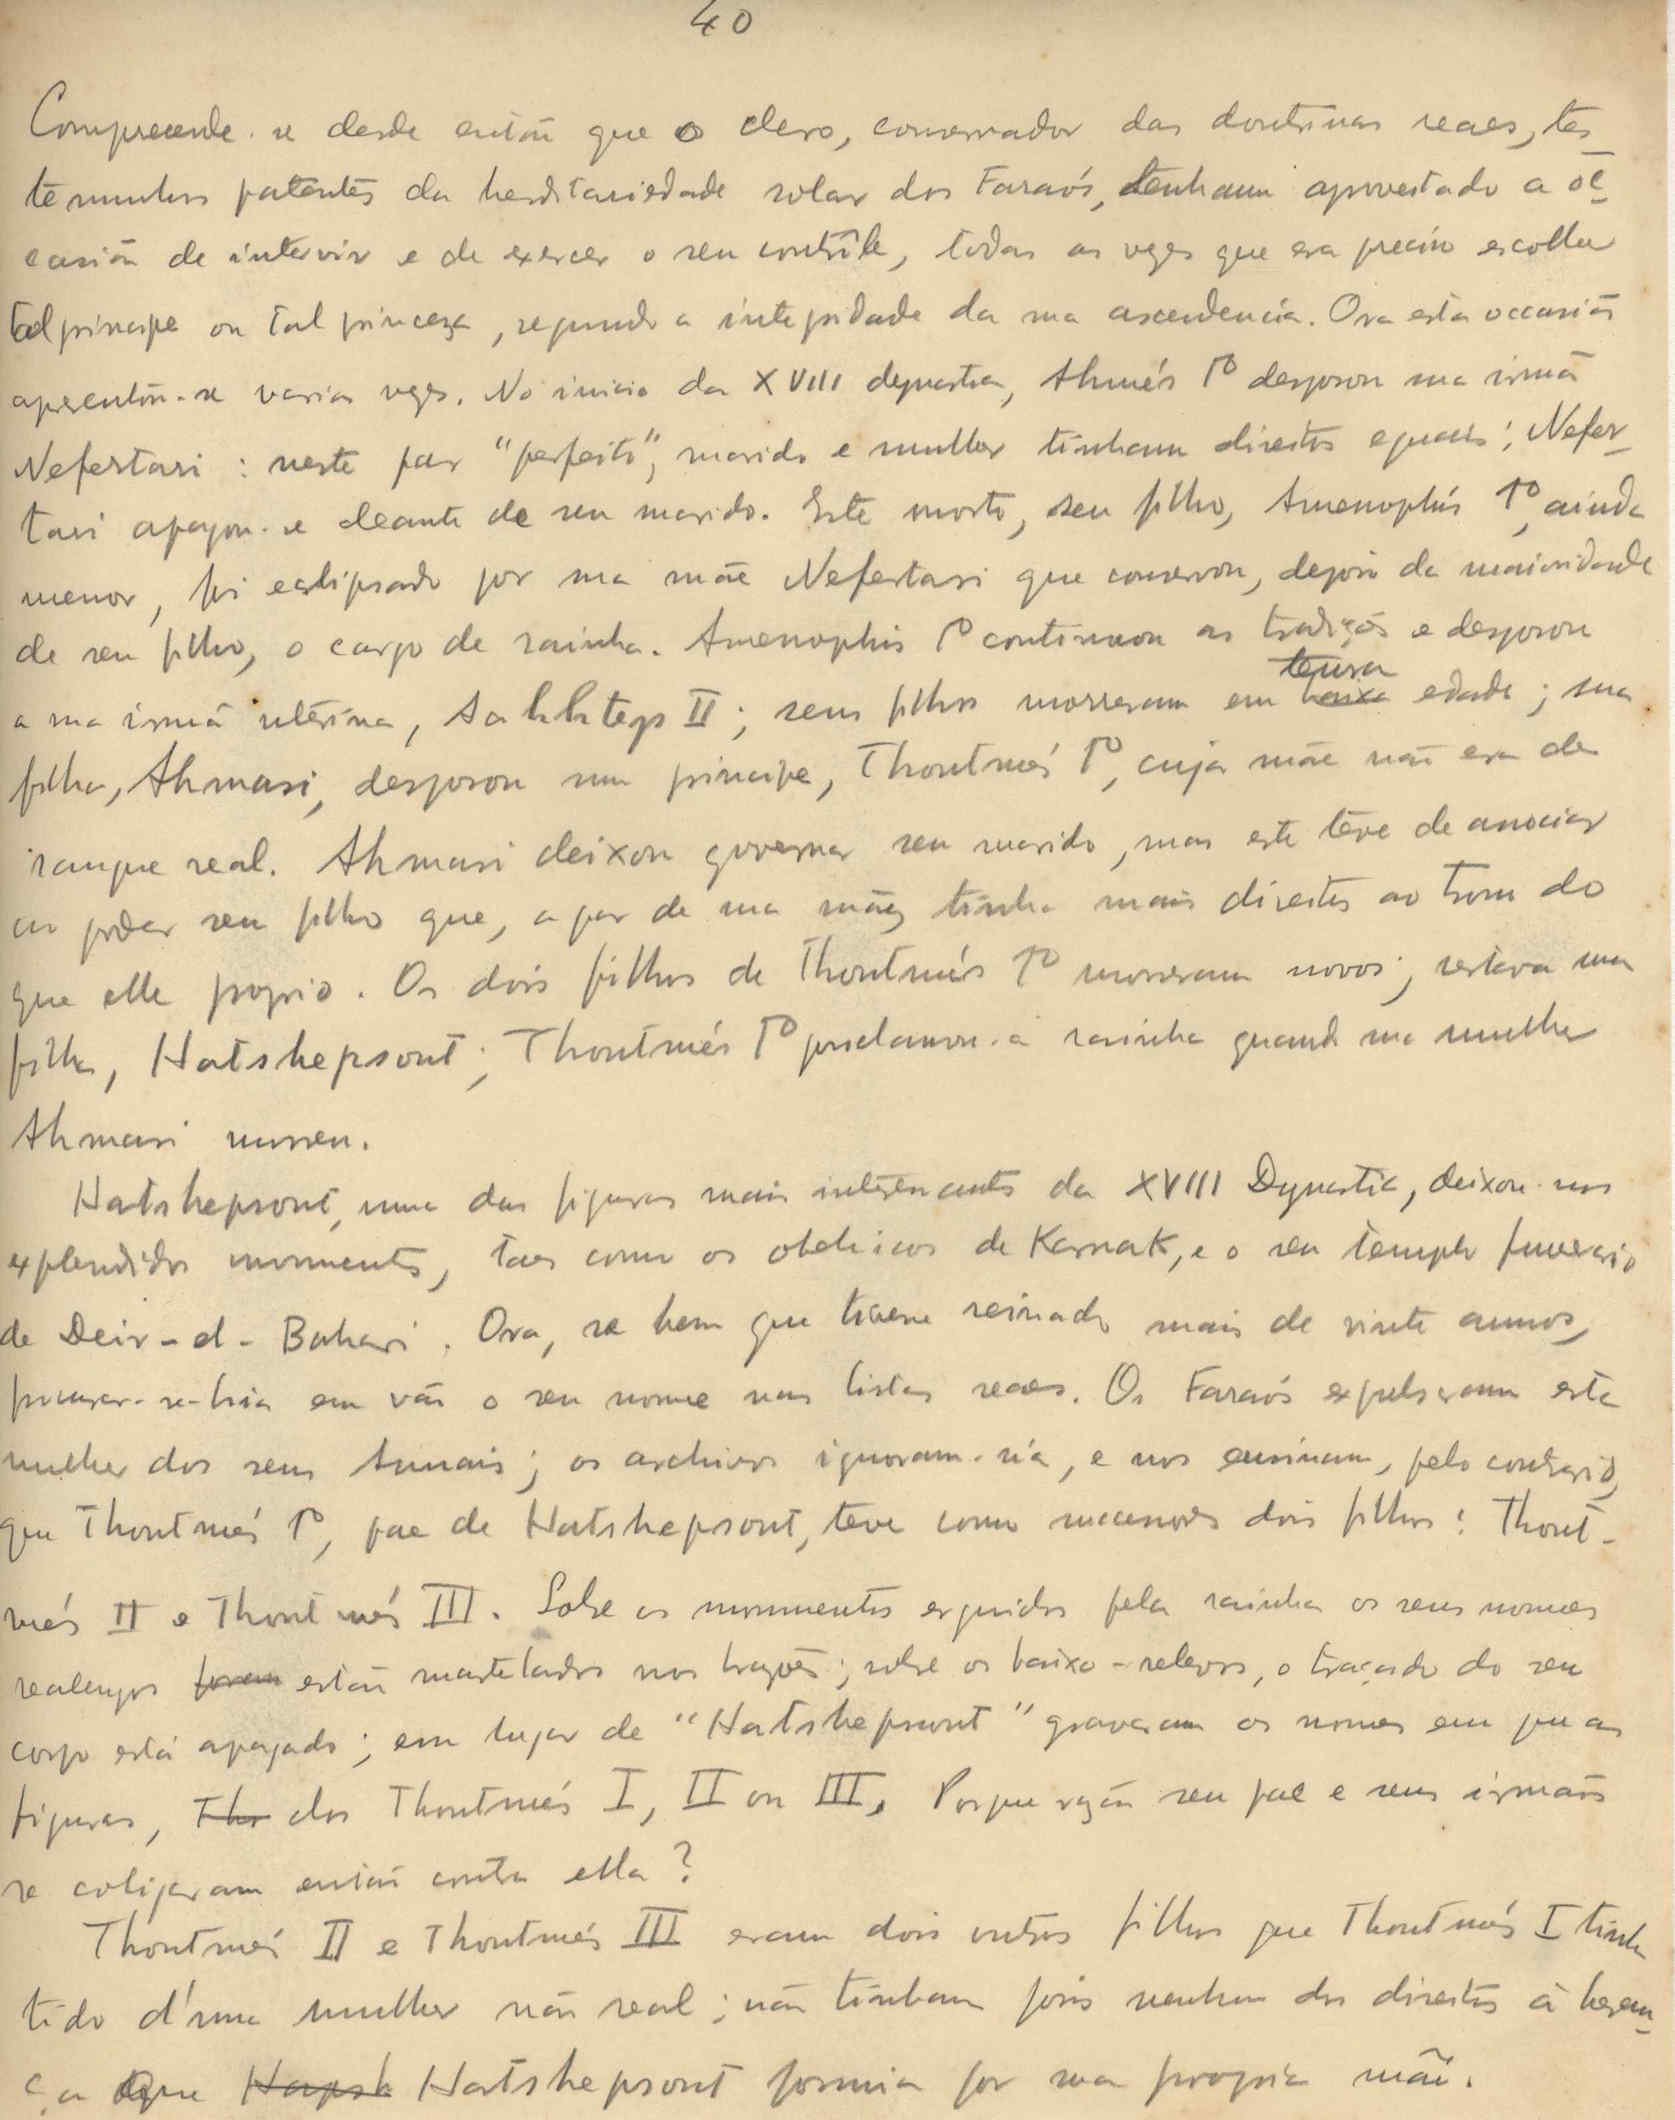 40
Comprehende-se desde então que o clero, conservador das doutrinas reaes, tes-
temunhos patentes da hereditariedade solar dos Faraós, tenham aproveitado a oc-
casião de intervir e de exercer o seu contrôle, todas as vezes que era preciso escolher
tal principe ou tal princeza, segundo a integridade da sua ascendencia. Ora esta occasião
apresentou-se varias vezes. No inicio da XVIII dynastia, Ahmés Iº desposou sua irmã
Nefertari : neste par "perfeito", marido e mulher tinham direitos eguais; Nefer-
tari apagou-se deante de seu marido. Este morto, seu filho, Amenophis Iº, ainda
menor, foi eclipsado por sua mãe Nefertari que conservou, depois da maioridade
de seu filho, o cargo de rainha. Amenophis Iº continuou as tradições e desposou
a sua irmã uterina, Aahhteps II; seus filhos morreram em baixa tenra edade; sua
filha, Ahmasi, desposou um principe, Thoutmés Iº, cuja mãe não era de
sangue real. Ahmasi deixou governar seu marido, mas este teve de associar
ao poder seu filho que, a par de sua mãe, tinha mais direitos ao trono do
que elle proprio. Os dois filhos de Thoutmés Iº morreram novos; restava uma
filha, Hatshepsout; Thoutmés Iº proclamou-a rainha quando sua mulher
Ahmasi morreu.
Hatshepsout, uma das figuras mais interessantes da XVIII Dynastia, deixou-nos
explendidos monumentos, taes como os obeliscos de Karnak, e o seu templo funerario
de Deir-el-Bahari. Ora, se bem que tivesse reinado mais de vinte annos,
procurar-se-hia em vão o seu nome nas listas reaes. Os Faraós expulsaram esta
mulher dos seus Annais; os archivos ignoram-na, e nos ensinam, pelo contrario,
que Thoutmés Iº, pae de Hatshepsout, teve como successores dois filhos: Thout-
més II e Thoutmés III. Sobre os monumentos erguidos pela rainha os seus nomes
realengos foram estão martelados nos brazões; sobre os baixo-relevos, o traçado do seu
corpo está apagado; em lugar de "Hatshepsout" gravaram os nomes em suas
figuras, Tho dos Thoutmés I, II ou III. Porque razão seu pae e seus irmãos
se coligaram então contra ella?
Thoutmés II e Thoutmés III eram dois outros filhos que Thoutmés I tinha
tido d'uma mulher não real; não tinham pois nenhum dos direitos á heran-
ça que Hapsh Hatshepsout possuia por sua propria mãe.